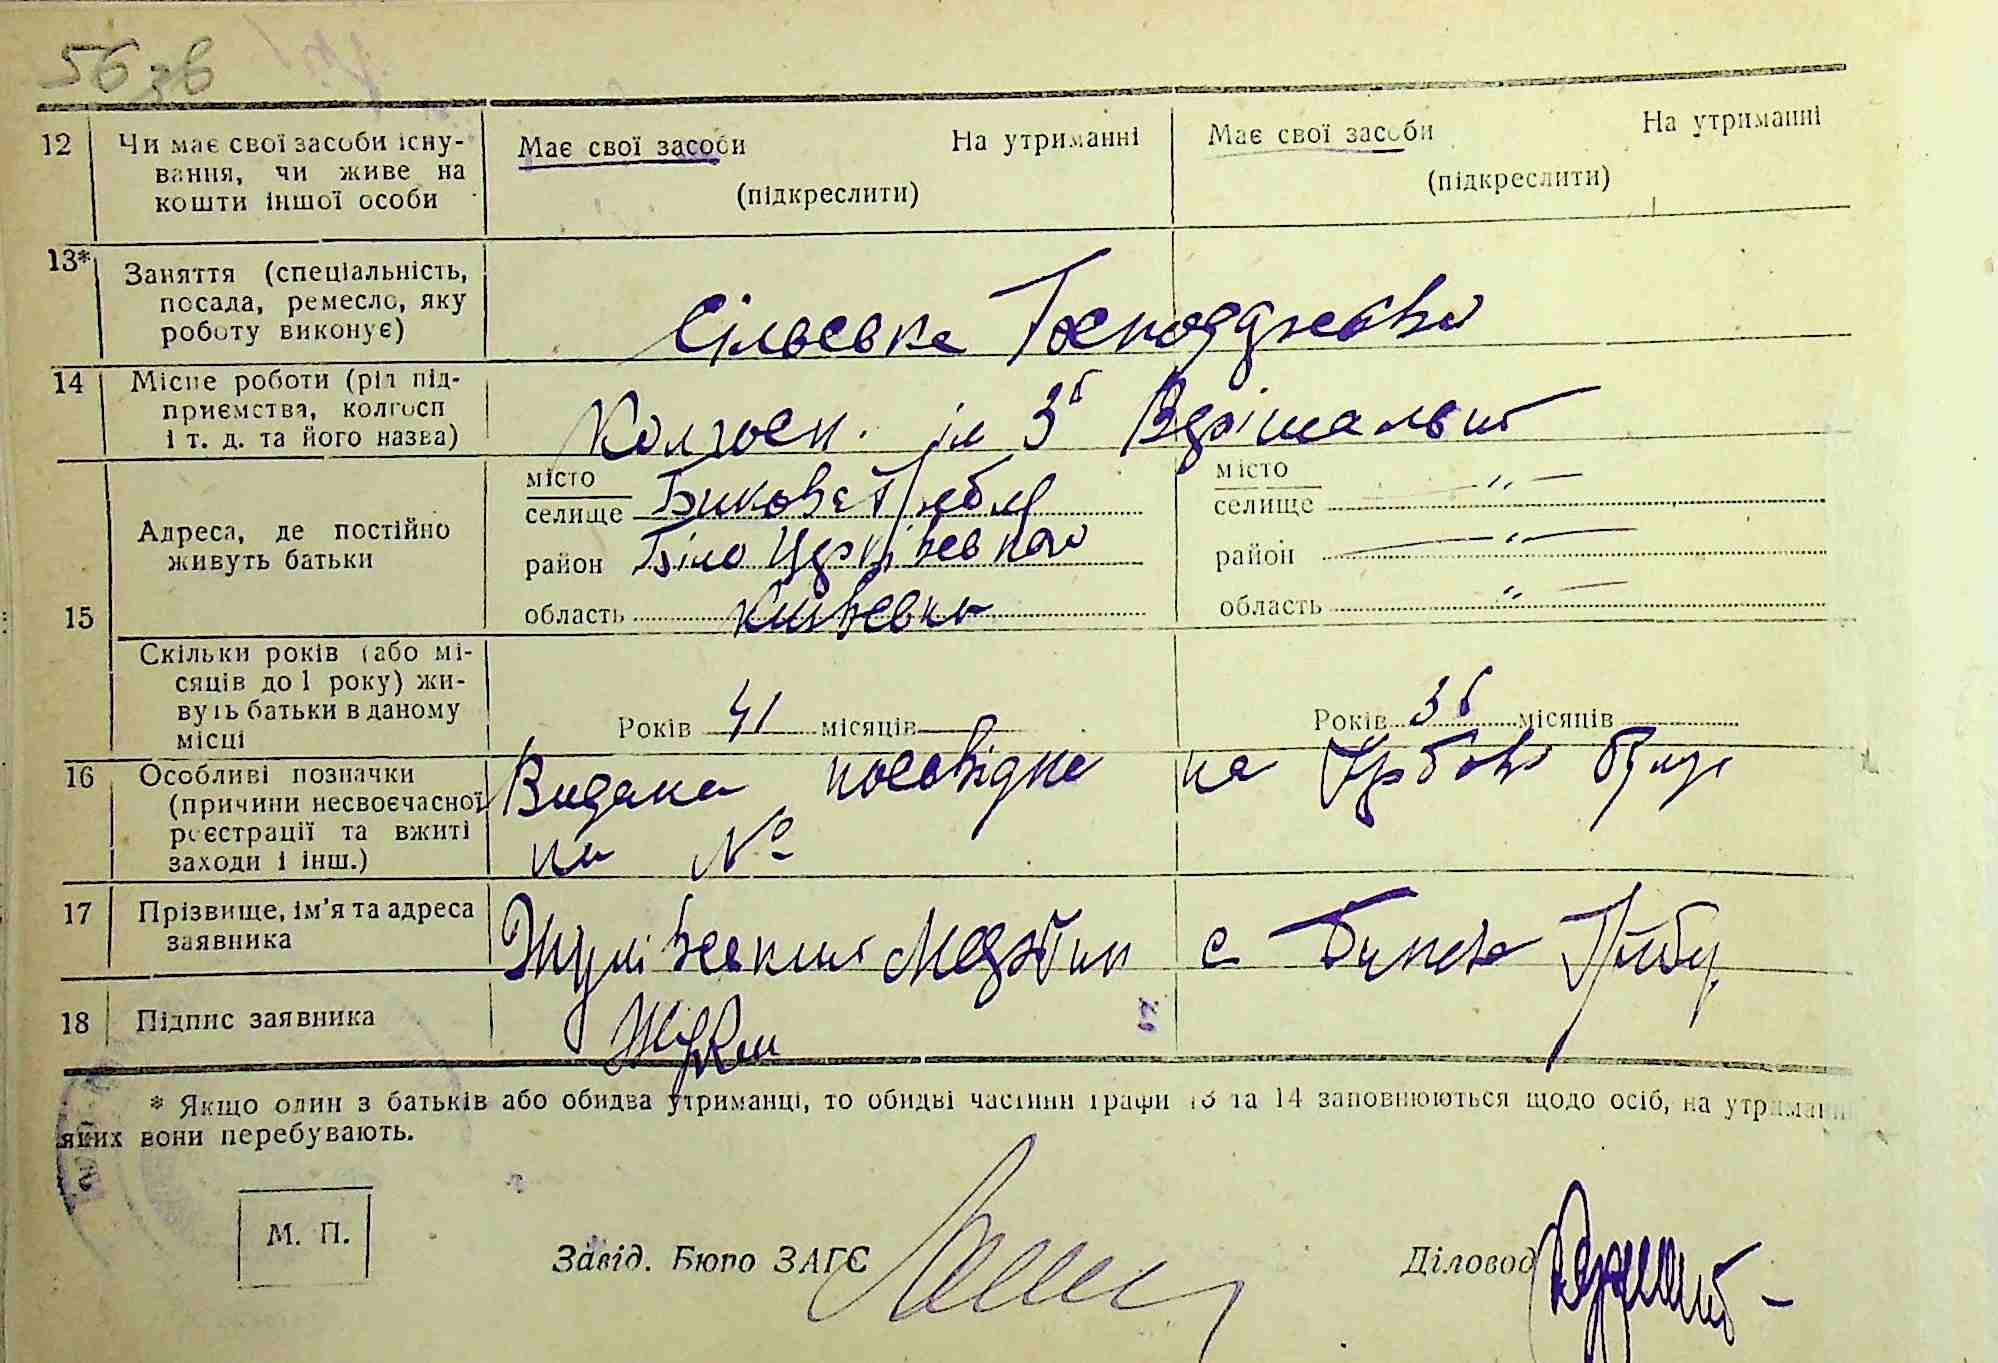 56 зв
12 Чи має свої засоби існу-
вання, чи живе на
кошти іншої особи
Має свої засоби На утриманні
(підкреслити)
Має свої засоби На утриманні
(підкреслити)
13* Заняття (спеціальність,
посада, ремесло, яку
роботу виконує)
Сільське Господарство
14 Місце роботи (рід під-
приємства, колгосп
і т. д. та його назва)
Колгосп
15 Адреса, де постійно
живуть батьки
місто
селище
район Біло Церківського
область Київська
місто
селище -"-
район -"-
область -"-
Скільки років (або мі-
сяців до 1 року) жи-
вуть батьки в даному
місці
Років 41 місяців —
Років 36 місяців
16 Особливі позначки
(причини несвоєчасної
реєстрації та вжиті
заходи і інш.)
Видана посвідка на
на №
17 Прізвище, ім'я та адреса
заявника
с
18 Підпис заявника
* Якщо один з батьків або обидва утриманці, то обидві частини графи 13 та 14 заповнюються щодо осіб, на утриманні
яких вони перебувають.
М. П.
Завід. Бюро ЗАГС
Діловод